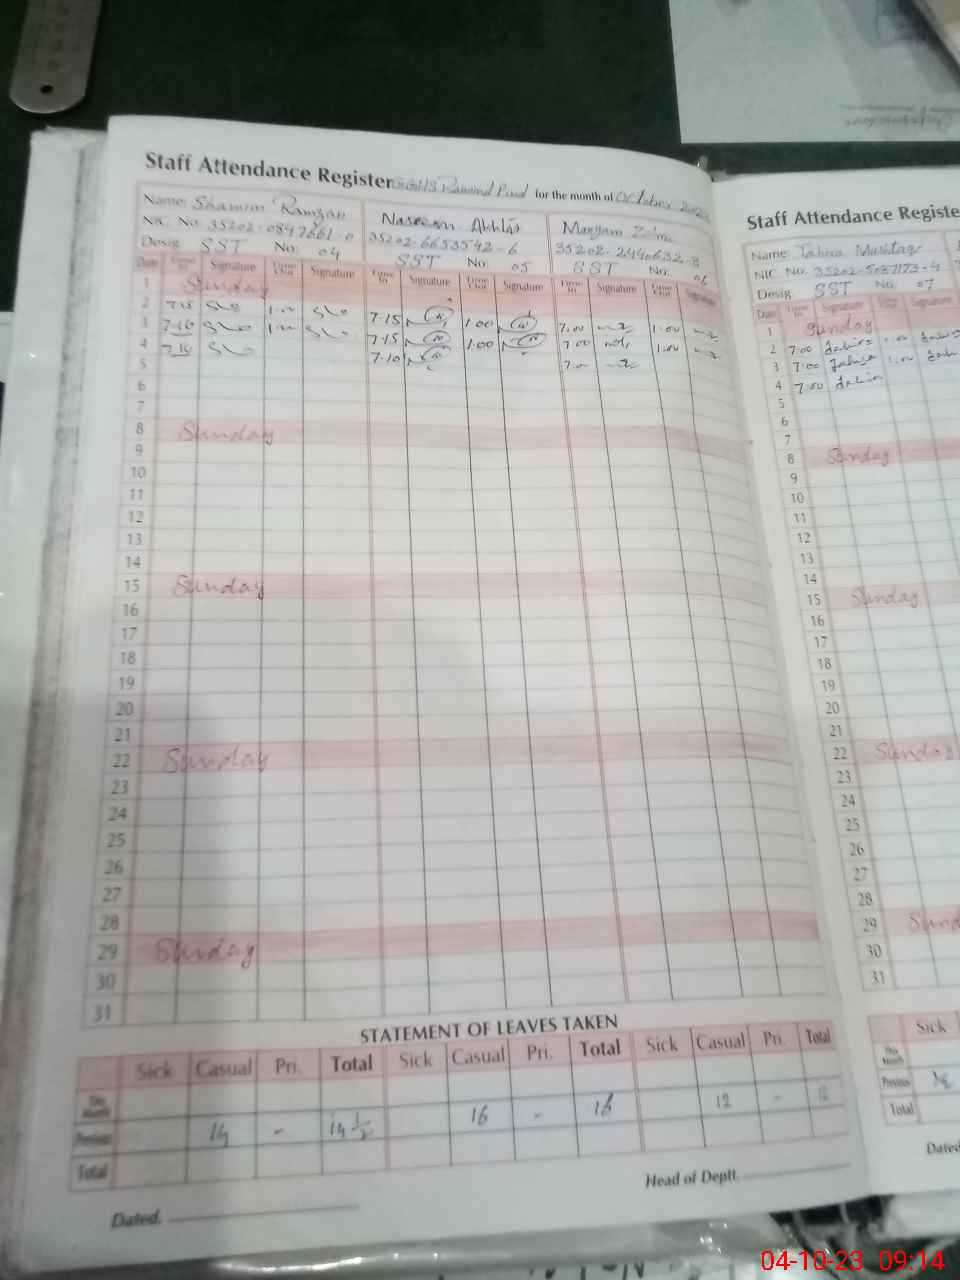 Staff Attendance Register GGHS Raiwind Pind for the month of October
Name: Shamim Ramzan
NIC. No. 35202-0847661-0
Desig. SST No: 04
Naseem Akhlas
35202-6653542-6
SST No: 05
Maryam
35202-2440632-8
SST No: 06
Date Time In Signature Time Out Signature Time In Signature Time Out Signature Time In Signature Time Out Signature
1 Sunday
2 7.15 1.00 7.15 1.00 7.00 1.00
3 7.16 1.00 7.15 1.00 7.00 1.00
4 7.16 7.10 7.00
5
6
7
8 Sunday
9
10
11
12
13
14
15 Sunday
16
17
18
19
20
21
22 Sunday
23
24
25
26
27
28
29 Sunday
30
31
STATEMENT OF LEAVES TAKEN
Sick Casual Pri. Total Sick Casual Pri. Total Sick Casual Pri. Total
This Month
Previous 14 - 14 1/2 16 - 16 12 - 12
Total
Dated. Head of Deptt.
Staff Attendance Registe
Name: Tahira Mushtaq
NIC No. 35202-5087173-4
Desig SST No. 07
Date Time In Signature Time Out Signature
1 Sunday
2 7.00 Tahira 1.00
3 7.00 Tahira 1.00
4 7.00 Tahira
5
6
7
8 Sunday
9
10
11
12
13
14
15 Sunday
16
17
18
19
20
21
22 Sunday
23
24
25
26
27
28
29 Sund
30
31
Sick
This Month
Previous
Total
Dated
04-10-23 09:14